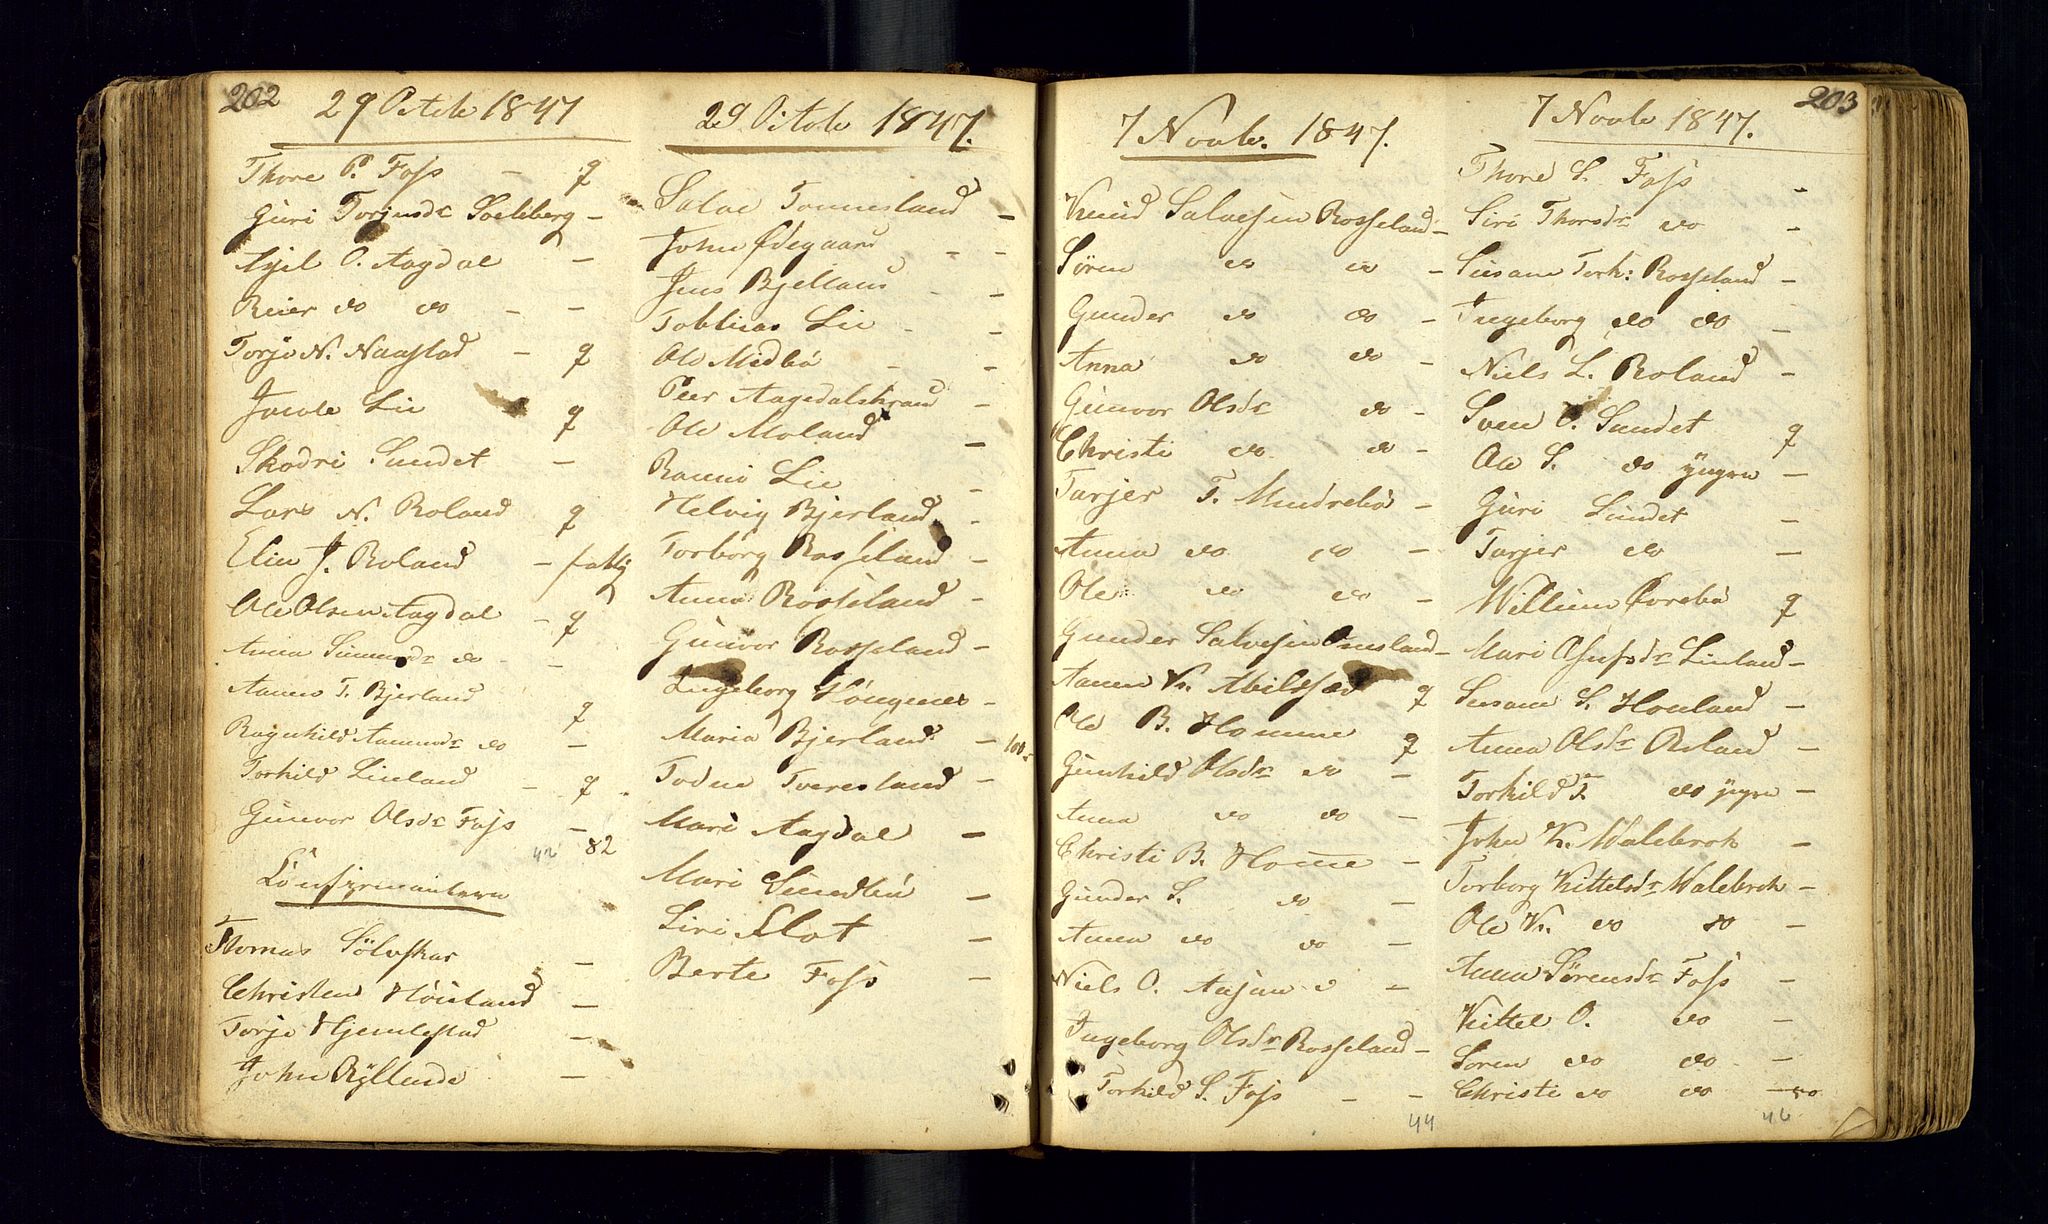 202
29 Octob 1847
Thore P. Foss - g
Guri Torjusdr Soeleberg -
Ajel O. Aagdal -
Reier do do - -
Torjo N. Naastad - g
Jacob Lie g
Skodri Sundet -
Lars N. Roland g
Elen J. Roland -
Ole Olsen Aagdal - g
Anna Simonsdr do - -
Aanen T. Bjerland g
Ragnhild Aanensdr do -
Torkild Linland - g
Gunvor Olsdr Foss -
42 82
Confirmantern
Thomas Sölvskar -
Christen Höiland -
Torjo Hjemlestad -
John Ryllende -
29 Octob 1847.
Salve Tonnesland -
John Ødegaard - -
Jens Bjelland - -
Tobbias Lie - -
Ole Midbö - -
Peer Aagedalstrand -
Ole Moland -
Ranni Lie -
Helvig Bjerland -
Torborg Rosseland -
Anna Rosseland -
Gunvor Rosseland -
Ingeborg Höngenes -
Maria Bjerland - 100
Todne Tveresland -
Mari Aagdal -
Mari Sundbö -
Siri Slot -
Berte Foss -
7 Novb. 1847.
Knud Salvesen Rosseland -
Sören do do -
Gunder do do -
Anna do do -
Gunvor Olsdr do -
Christi do do -
Tarjer T. Mundrebö -
Anna do do -
Ole do do -
Gunder Salvesen Ousland -
Aanen K. Abilsföe g
Ole B. Homme g
Gunhild Olsdr do -
Anna do do -
Christi B. Home -
Gunder S. do -
Anna do do -
Niels O. -
Ingeborg Olsdr Rosseland -
Torkild S. Foss - -
44
203
7 Novb 1847.
Thore S. Foss -
Siri Thorsdr do -
Susane Tork: Rosseland -
Ingeborg do do -
Niels L. Roland -
Sven O. Sundet g
Ole S. do yngre -
Guri Sundet -
Tarjer do -
Willum Øvrebö g
Mari Osufsdr Linland -
Susane S. Houland -
Anna Olsdr Roland -
Torkild T. do yngre -
John K. Walebrok -
Torborg Kittelsdr Walebrok -
Ole K. do do -
Anna Sörensdr Foss -
Kittel O. do -
Sören do do -
Christi do do - 80
46